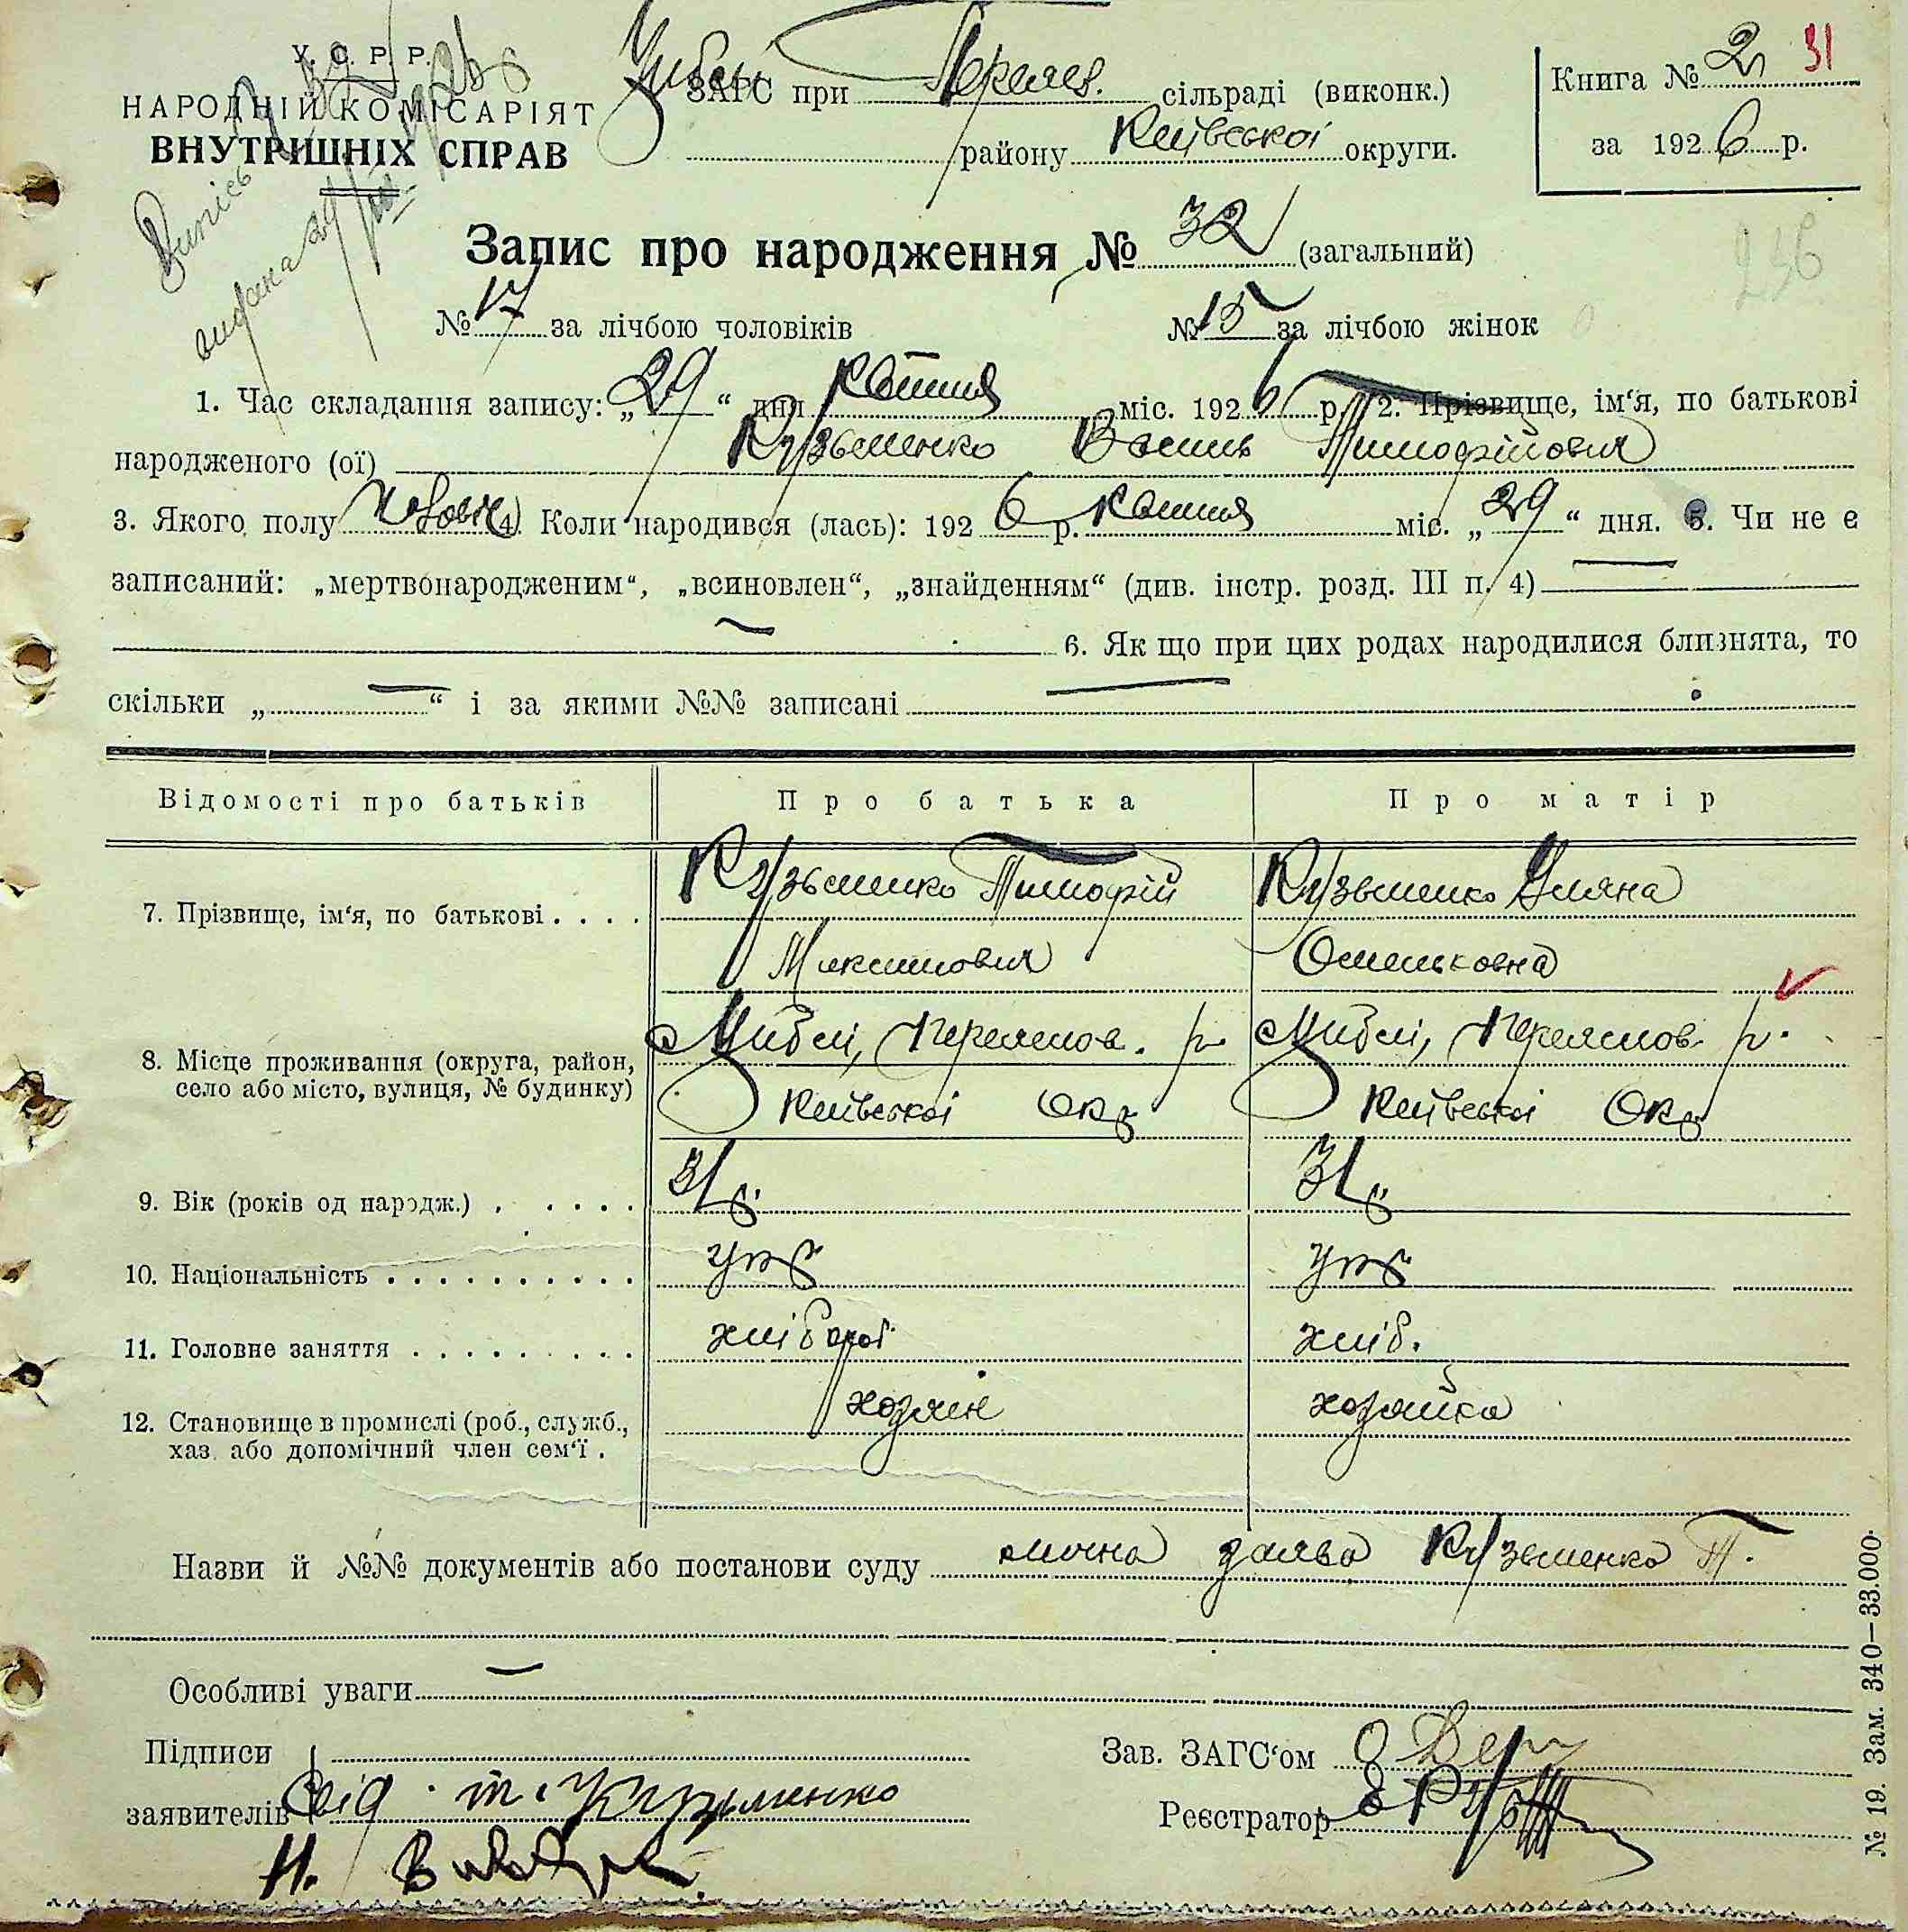 У. С. Р. Р.
НАРОДНІЙ КОМІСАРІЯТ
ВНУТРИШНІХ СПРАВ
ЗАГС при Переяс. сільраді (виконк.)
району Київської округи.
Книга № 2 31
за 1926 р.
Випись
видана 24/III
Запис про народження № 32 (загальний)
236
№ 17 за лічбою чоловіків № 15 за лічбою жінок
1. Час складання запису: „29“ дня Квітня міс. 1926 р. 2. Прізвище, ім‘я, по батькові
народженого (ої) Кузьменко Василь Тимофійович
3. Якого полу чолові 4. Коли народився (лась): 1926 р. Квітня міс. „29“ дня. 5. Чи не є
записаний: „мертвонародженим“, „всиновлен“, „знайденням“ (див. інстр. розд. III п. 4) —
— 6. Як що при цих родах народилися близнята, то
скільки „ — “ і за якими №№ записані —
Відомості про батьків Про батька Про матір
7. Прізвище, ім‘я, по батькові . . . . Кузьменко Тимофій Кузьменко Уляна
Максимович Омельковна
8. Місце проживання (округа, район, село або місто, вулиця, № будинку) Циблі, Переяслов. р. Циблі, Переяслов. р.
Київської Окр Київської Окр
9. Вік (років од народж.) . . . . . 31 р. 31 р.
10. Національність . . . . . . . . . . укр укр
11. Головне заняття . . . . . . . . . хлібороб хліб.
12. Становище в промислі (роб., служб., хаз. або допомічний член сем‘ї . хозяїн хозяйка
Назви й №№ документів або постанови суду лична заява Кузьменко Т.
Особливі уваги —
Підписи Зав. ЗАГС‘ом
заявителів т. Кузьменко Реєстратор
№ 19. Зам. 340—33.000.